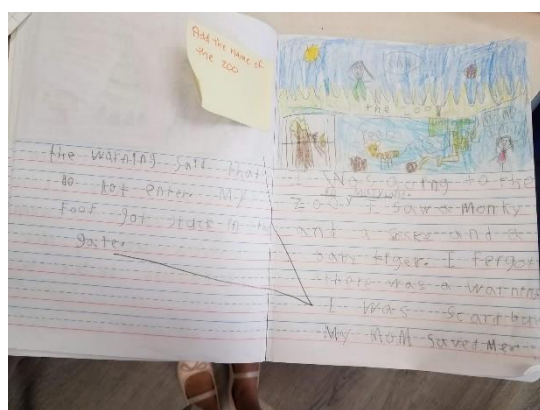 Add the name of
the zoo
the warning sait that
do not enter. My
foot got stuck in the
gate.
the zoo
going to the
zoo. I saw a monky
ant a and a
tiger. I fergot
there was a warning
I was scard but
My MoM savet Me